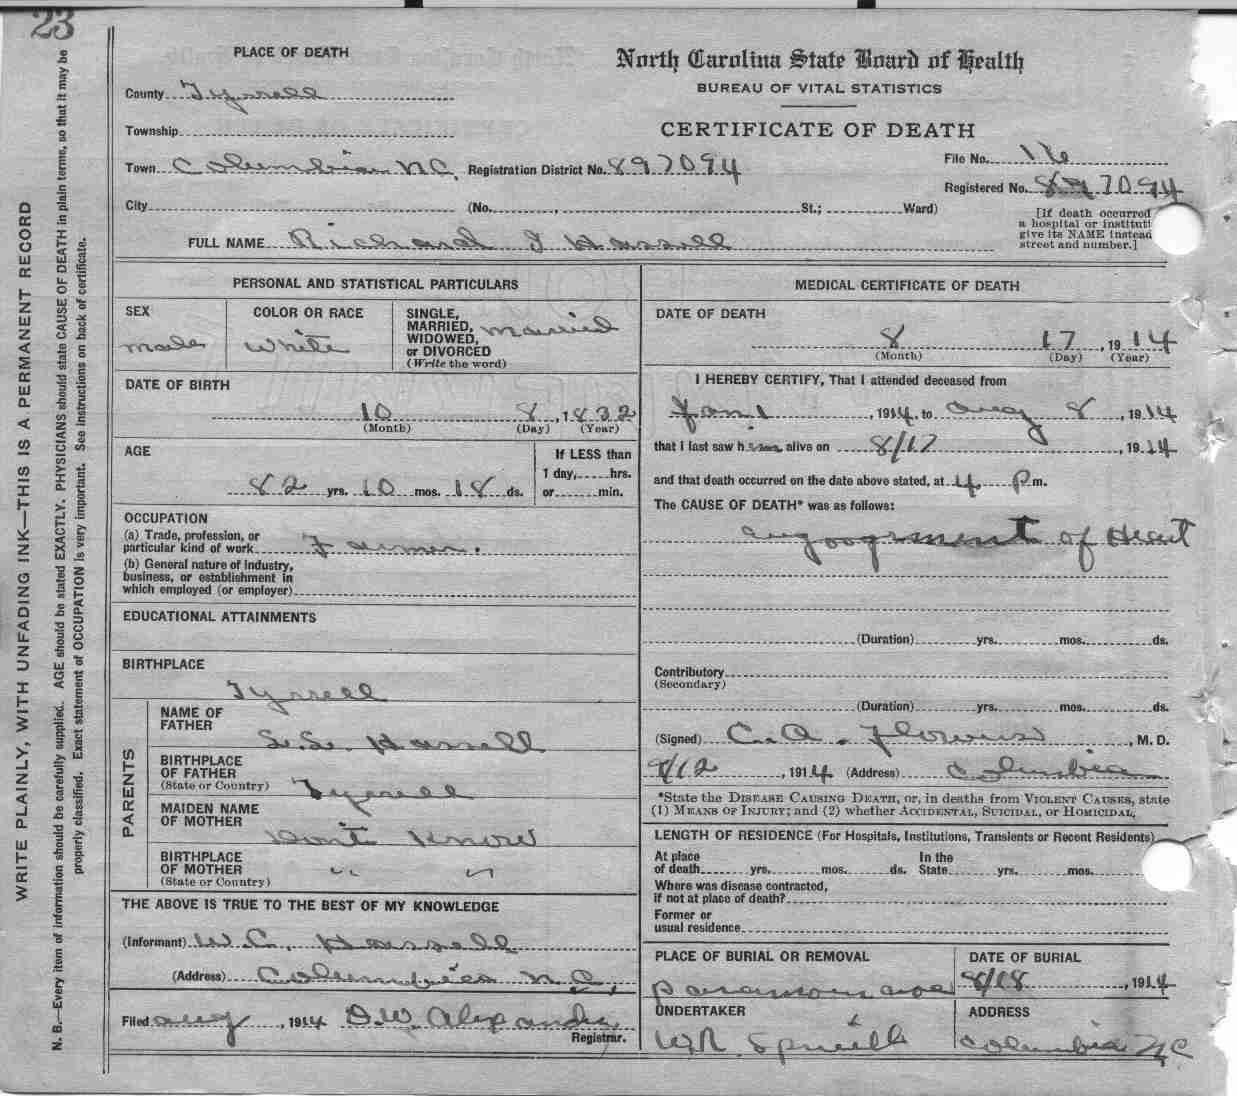 23
WRITE PLAINLY, WITH UNFADING INK—THIS IS A PERMANENT RECORD
N. B.—Every item of information should be carefully supplied. AGE should be stated EXACTLY. PHYSICIANS should state CAUSE OF DEATH in plain terms, so that it may be
properly classified. Exact statement of OCCUPATION is very important. See instructions on back of certificate.
PLACE OF DEATH
County Tyrrell
Township
Town Columbia N.C. Registration District No. 897094
City (No. , St.; Ward)
North Carolina State Board of Health
BUREAU OF VITAL STATISTICS
CERTIFICATE OF DEATH
File No. 116
Registered No. 897094
[If death occurred
a hospital or instituti
give its NAME instead
street and number.]
FULL NAME Richard J Hassell
PERSONAL AND STATISTICAL PARTICULARS
SEX
male
COLOR OR RACE
White
SINGLE,
MARRIED,
WIDOWED,
or DIVORCED
(Write the word)
married
DATE OF BIRTH
10 8, 1832
(Month) (Day) (Year)
AGE
82 yrs. 10 mos. 18 ds.
If LESS than
1 day, hrs.
or min.
OCCUPATION
(a) Trade, profession, or
particular kind of work Farmer.
(b) General nature of industry,
business, or establishment in
which employed (or employer)
EDUCATIONAL ATTAINMENTS
BIRTHPLACE
Tyrrell
PARENTS
NAME OF
FATHER
Hassell
BIRTHPLACE
OF FATHER
(State or Country)
Tyrrell
MAIDEN NAME
OF MOTHER
Dont Know
BIRTHPLACE
OF MOTHER
(State or Country)
" "
THE ABOVE IS TRUE TO THE BEST OF MY KNOWLEDGE
(Informant) W.C. Hassell
(Address) Columbia N.C.
Filed Aug, 1914 D.W. Alexander
Registrar.
MEDICAL CERTIFICATE OF DEATH
DATE OF DEATH
8 17, 1914
(Month) (Day) (Year)
I HEREBY CERTIFY, That I attended deceased from
Jan 1, 1914, to Aug 8, 1914
that I last saw h alive on 8/17, 1914
and that death occurred on the date above stated, at 4 P m.
The CAUSE OF DEATH* was as follows:
of Heart
(Duration) yrs. mos. ds.
Contributory
(Secondary)
(Duration) yrs. mos. ds.
(Signed) C.A. Flowers, M. D.
8/12, 1914 (Address) Columbia
*State the DISEASE CAUSING DEATH, or, in deaths from VIOLENT CAUSES, state
(1) MEANS OF INJURY; and (2) whether ACCIDENTAL, SUICIDAL, or HOMICIDAL.
LENGTH OF RESIDENCE (For Hospitals, Institutions, Transients or Recent Residents)
At place
of death yrs. mos. ds.
In the
State yrs. mos.
Where was disease contracted,
if not at place of death?
Former or
usual residence
PLACE OF BURIAL OR REMOVAL
DATE OF BURIAL
8/18, 1914
UNDERTAKER
W.R. Spruill
ADDRESS
Columbia NC